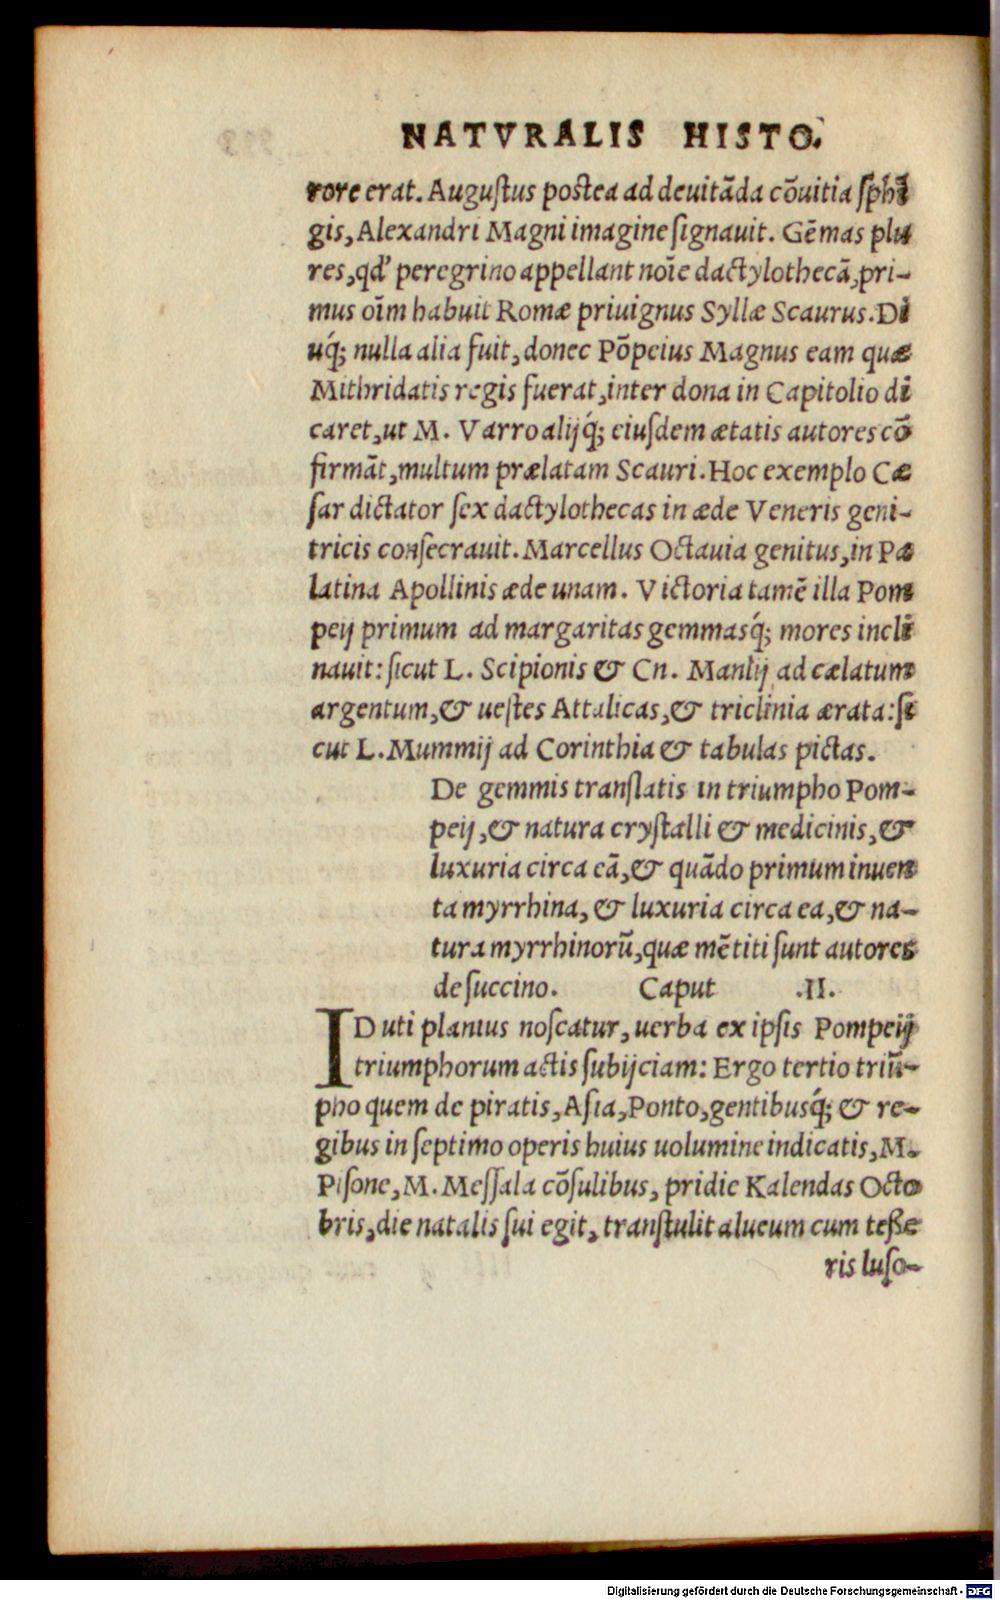 NATVRALIS HISTO.
rore erat. Augustus postea ad deuitāda cōuitia sphī
gis, Alexandri Magni imagine signauit. Gēmas plu
res, qd' peregrino appellant noīe dactylothecā, pri-
mus oīm habuit Romæ priuignus Syllæ Scaurus. Di
uq́; nulla alia fuit, donec Pōpeius Magnus eam quæ
Mithridatis regis fuerat, inter dona in Capitolio di
caret, ut M. Varro alijq́; eiusdem ætatis autores cō
firmāt, multum prælatam Scauri. Hoc exemplo Cæ
sar dictator sex dactylothecas in æde Veneris geni-
tricis consecrauit. Marcellus Octauia genitus, in Pa
latina Apollinis æde unam. Victoria tamē illa Pom
peij primum ad margaritas gemmasq́; mores incli
nauit: sicut L. Scipionis & Cn. Manlij ad cælatum
argentum, & uestes Attalicas, & triclinia ærata: si
cut L. Mummij ad Corinthia & tabulas pictas.
De gemmis translatis in triumpho Pom-
peij, & natura crystalli & medicinis, &
luxuria circa eā, & quādo primum inuen
ta myrrhina, & luxuria circa ea, & na-
tura myrrhinorū, quæ mētiti sunt autores
de succino. Caput .II.
ID uti planius noscatur, uerba ex ipsis Pompeij
triumphorum actis subijciam: Ergo tertio triū-
pho quem de piratis, Asia, Ponto, gentibusq́; & re-
gibus in septimo operis huius uolumine indicatis, M.
Pisone, M. Messala cōsulibus, pridie Kalendas Octo
bris, die natalis sui egit, transtulit alueum cum tesse
ris luso-
Digitalisierung gefördert durch die Deutsche Forschungsgemeinschaft - DFG